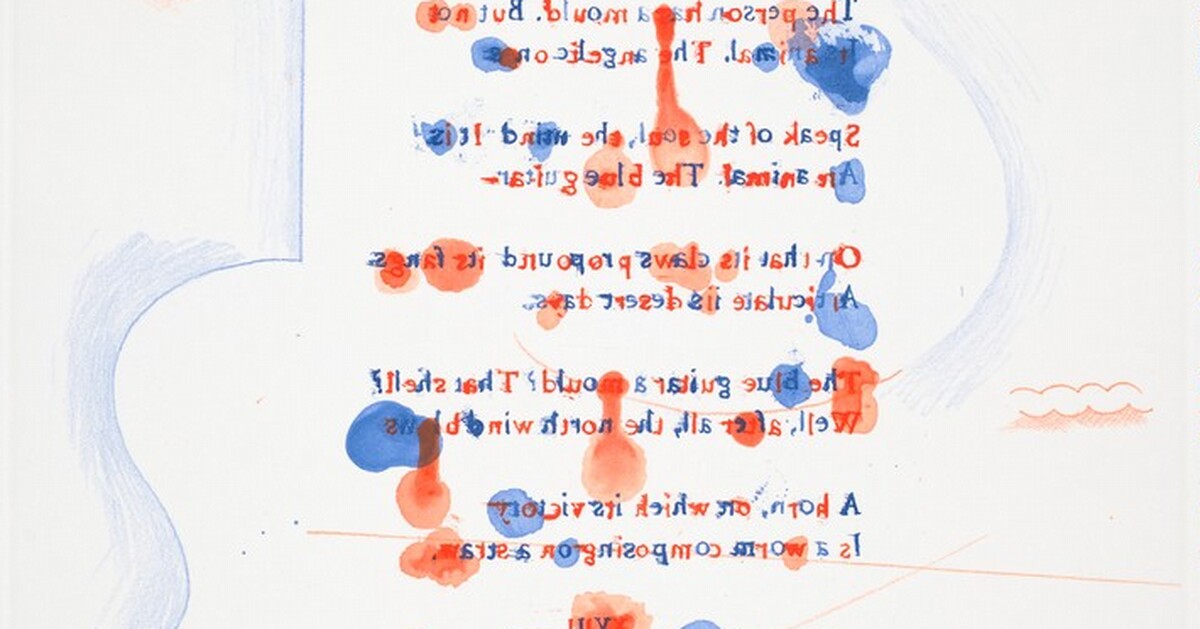 The person has a mould. But not
Its animal. The angelic ones
Speak of the soul, the mind It is
An animal. The blue guitar-
On that its claws propound its fangs
Articulate its desert days.
The blue guitar a mould? That shell?
Well, after all, the north wind blows
A horn, on which its victory
Is a worm composing on a straw.